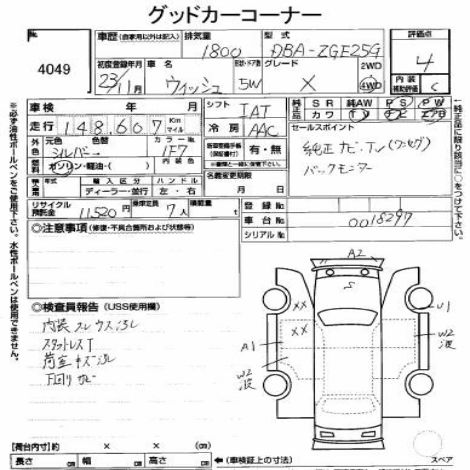 グッドカーコーナー
4049
車歴 (自家用以外は記入)
排気量
型式
評価点
1800
DBA-ZGE25G
4
初度登録年月
車名
形状・ドア数
グレード
2WD
4WD
内装
補助評価
C
23/11月
ウィッシュ
5W
X
車検
年
月
走行
148,607
Km
マイル
シフト
IAT
冷房
AAC
純正
SR
純AW
PS
PW
カワ
TV
ナビ
エアB
元色
色替
カラーNo.
シルバー→
1F7
新車整備手帳
(保証書付)
有・無
セールスポイント
純正ナビ、TV(ワンセグ)
バックモニター
燃料
ガソリン・軽油・( )
年式
輸入区分
ハンドル
年
ディーラー・並行
左・右
名義変更期限
月 日
リサイクル
預託金
11,520円
乗車定員
7人
積載量
登録No.
車台No.
0018297
シリアルNo.
◎注意事項 (修復・不具合箇所および状態等)
◎検査員報告 (USS使用欄)
内装スレ ウスヨゴレ
スタットレスT
荷室キズヨゴレ
下回りサビ
A2
S
XX
XX
U1
W2
波
A1
W2
波
(荷台内寸) 約
×
×
長さ
cm
幅
cm
高さ
cm
←(車検証上の寸法)
スペア
※必ず油性ボールペンをご使用下さい。水性ボールペンは使用できません。
(純正品に限り該当に○をつけて下さい。)